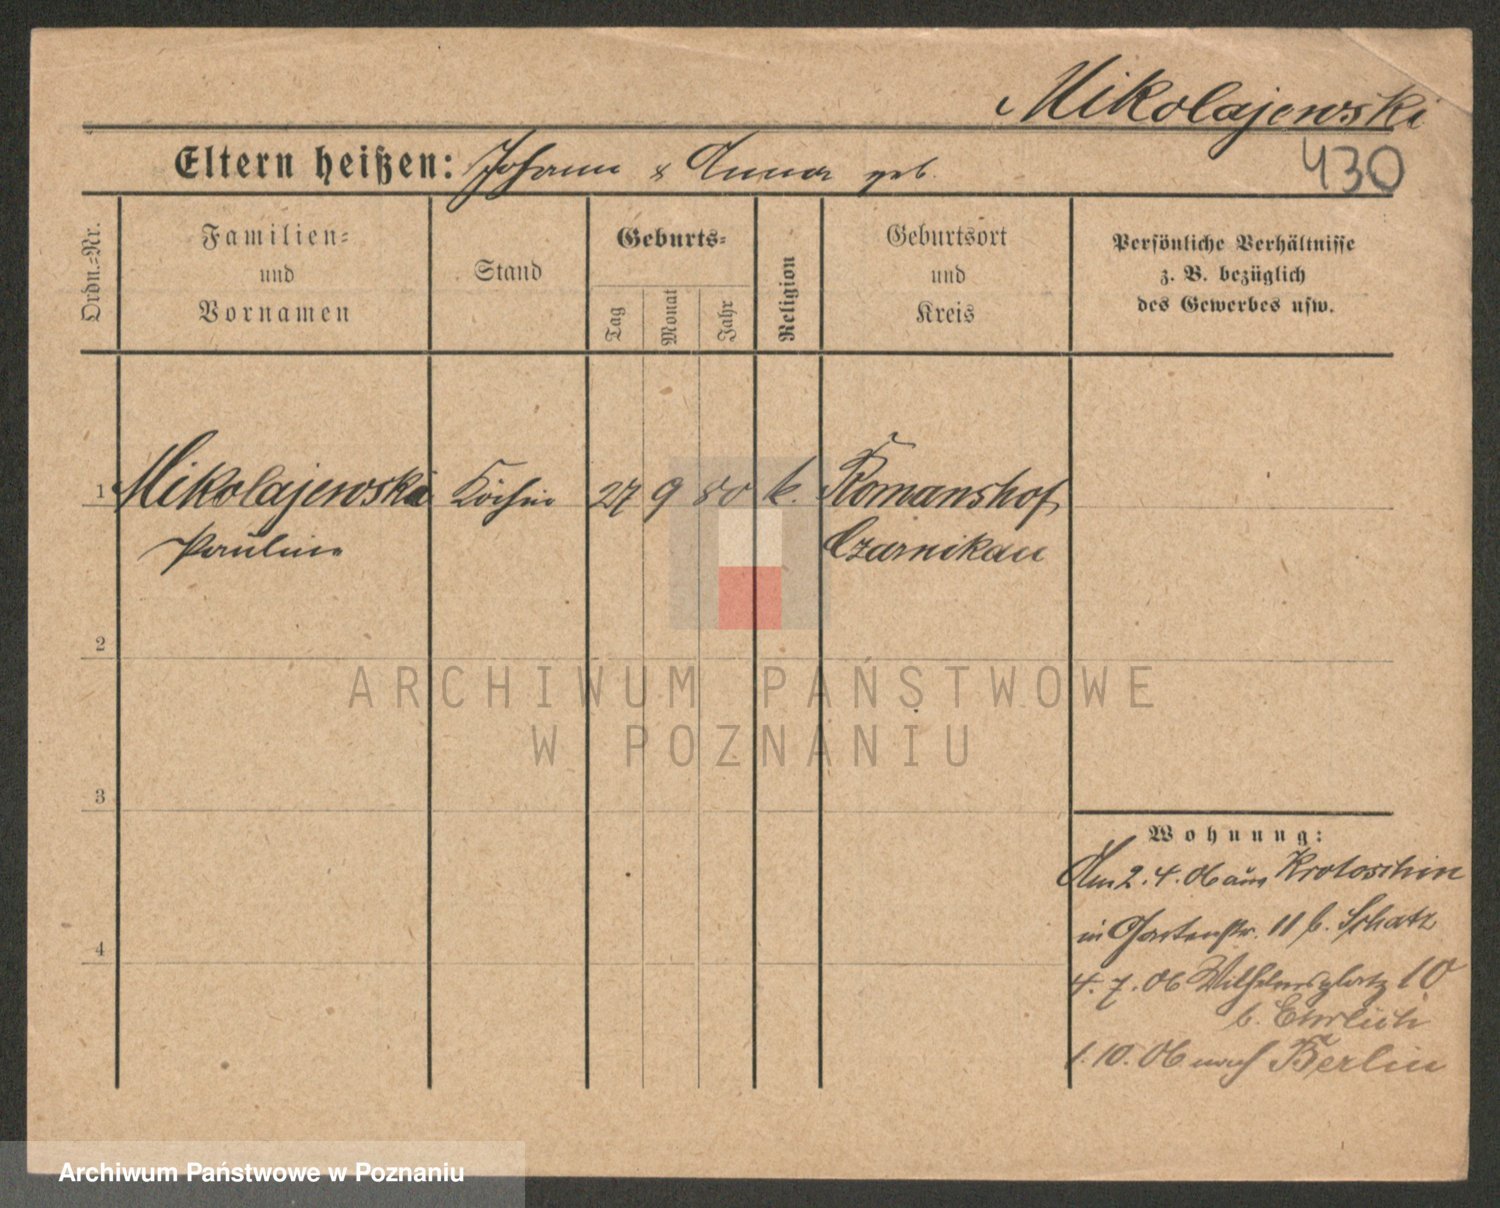 Mikolajewski
430
Eltern heißen: Johann & Anna geb.
Ordn.=Nr.
Familien=
und
Vornamen
Stand
Geburts=
Tag
Monat
Jahr
Religion
Geburtsort
und
Kreis
Persönliche Verhältnisse
z. B. bezüglich
des Gewerbes usw.
1 Mikolajewska Köchin 27 9 80 k. Romanshof
Pauline Czarnikau
2
3
4
Wohnung:
Am 2.4.06 aus Krotoschin
in Gartenstr. 11 b. Schatz
4.7.06 Wilhelmsplatz 10
b. Ehrlich
1.10.06 nach Berlin
ARCHIWUM PAŃSTWOWE
W POZNANIU
Archiwum Państwowe w Poznaniu